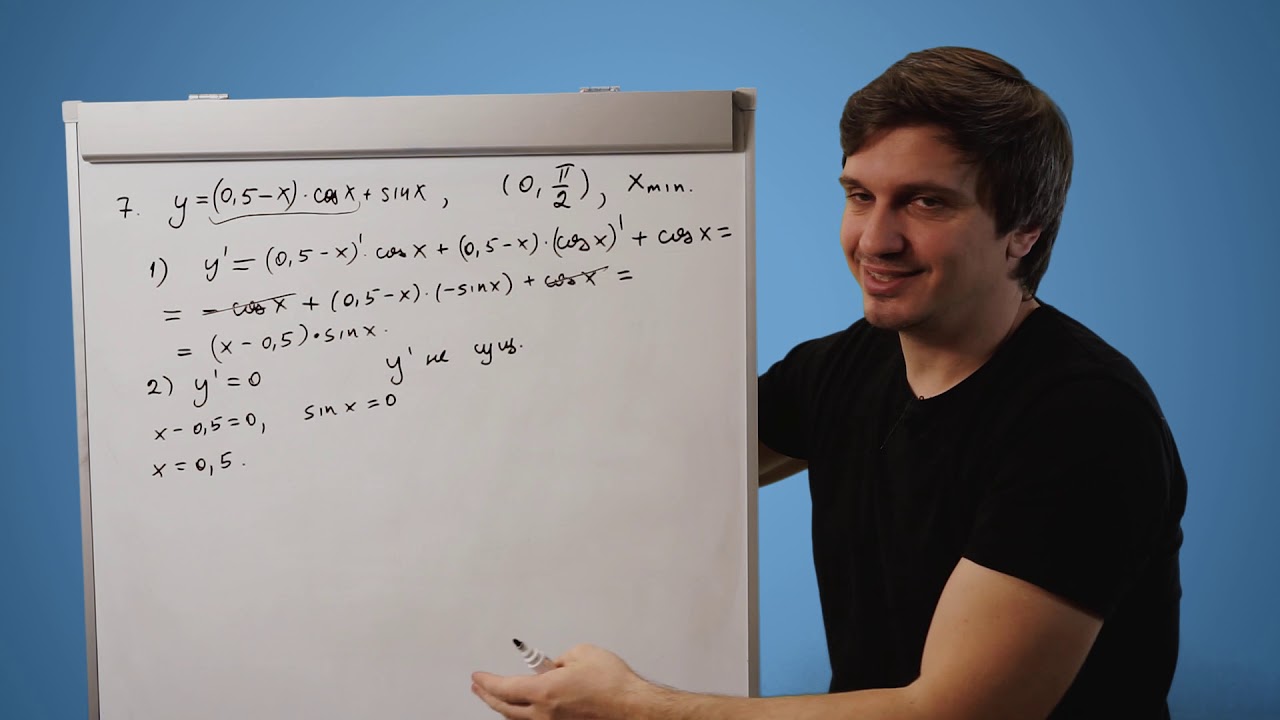 7. y=(0,5-x)·cosx+sinx, (0, π/2), xmin.
1) y'=(0,5-x)'·cosx+(0,5-x)·(cosx)'+cosx=
= -cosx+(0,5-x)·(-sinx)+cosx=
=(x-0,5)·sinx.
2) y'=0 y' не сущ.
x-0,5=0, sinx=0
x=0,5.